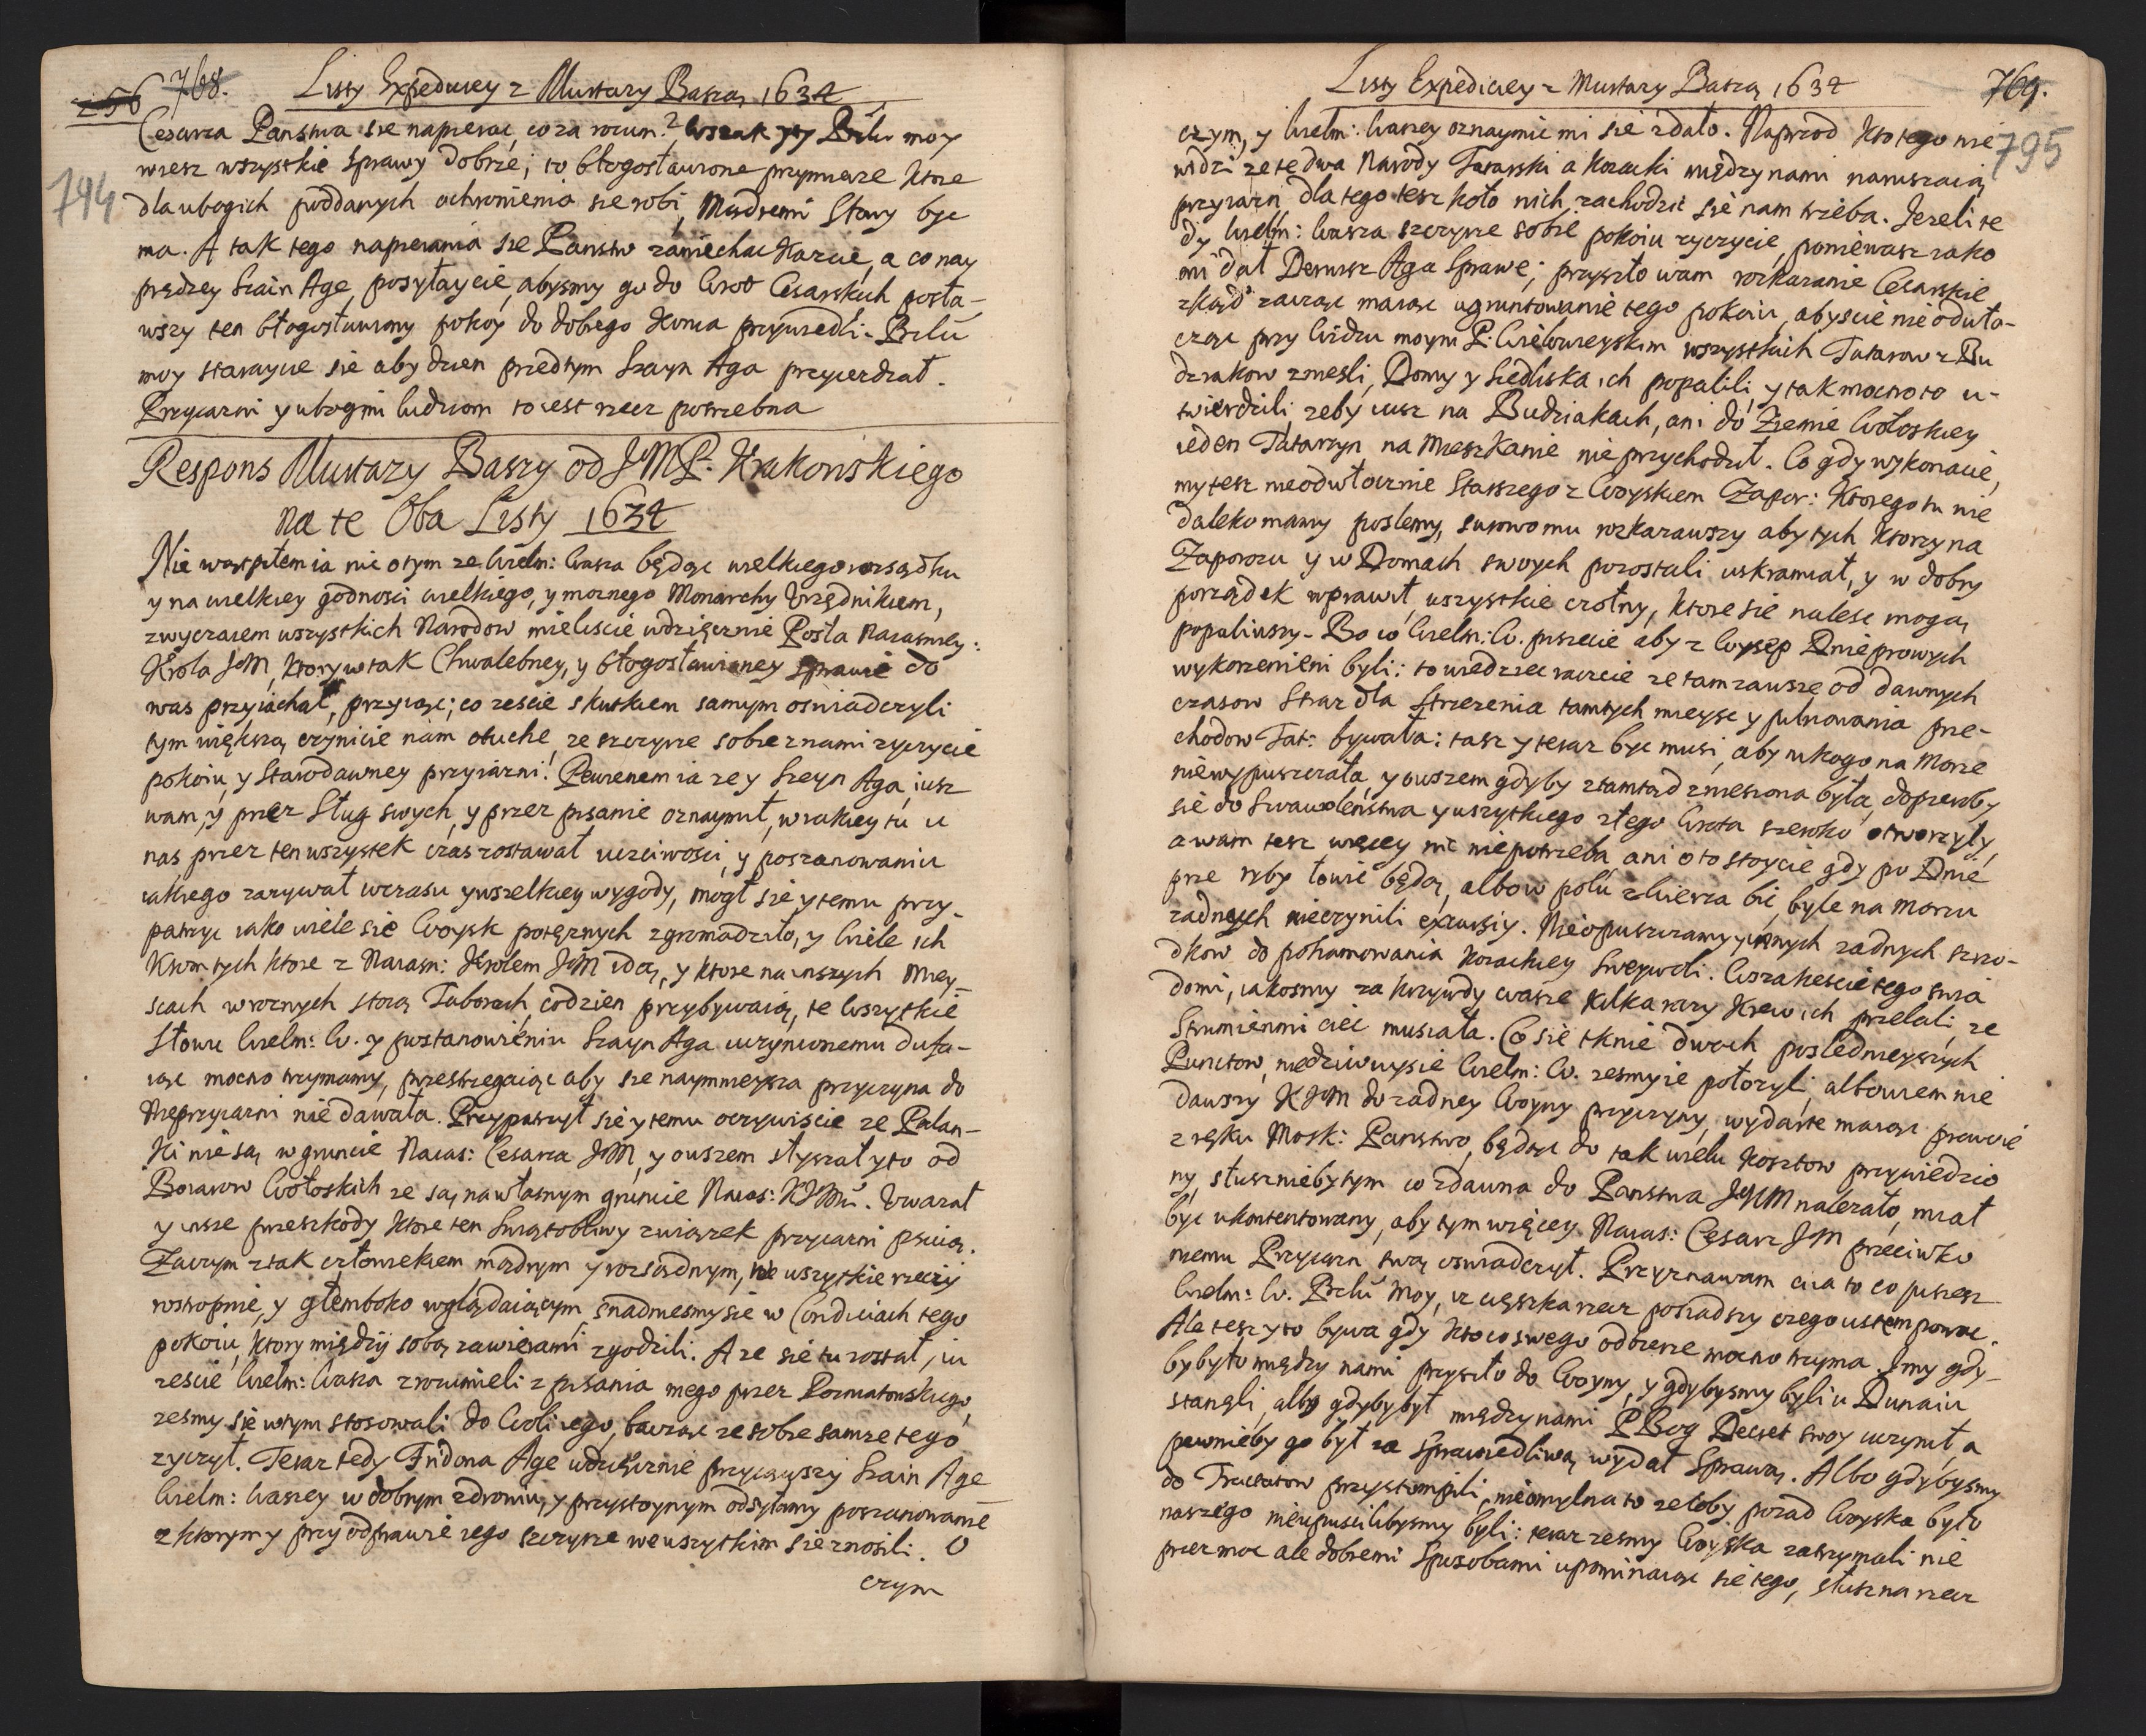 256 768. Listy Expediciey z Murtazy Baszą 1634
794
Cesarza Państwa sie napierac, co za rozum? Wszak ty Beliu moy
wiesz wszystkie sprawy dobrze; to błogosławione przymierze ktore
dla ubogich poddanych ochronienia sie robi, Mądremi Słowy byc
ma. A tak tego napierania sie Państw zaniechac karzcie, a co nay
prędzey Szain Age posyłaycie, abysmy go do Wrot Cesarskich posła-
wszy ten błogosławiony pokoy do dobrego konca przywiedli. Beliu
moy staraycie sie aby dzien przedtym Szayn Aga przyierdzał.
Przyiazni y ubogim ludziom to iest rzecz potrzebna
Respons Murtazy Baszy od JMP. Krakowskiego
na te Oba Listy 1634
Nie wątpiłem ia nic o tym ze Wielm: Wasza będąc wielkiego rozsądku
y na wielkiey godnosci wielkiego, y moznego Monarchy Urzędnikiem,
zwyczaiem wszystkich Narodow mieliscie wdzięcznie Posła Naiasniey:
Krola JM, ktory w tak Chwalebney, y błogosławioney sprawie do
was przyiachał, przyiąc; co zescie skutkiem samym osiadczyli
tym większą czynicie nam otuche, ze szczyrze sobie z nami zyczycie
pokoiu, y Starodawney przyiazni! Pewienem ia ze y Szeyn Aga iusz
wam, y przez Sług swych, y przez pisanie oznaymił, w iakiey tu u
nas przez ten wszystek czas zostawał uczciwosci, y poszanowaniu
iakiego zazywał wczasu y wszelkiey wygody, mogł sie y temu przy-
patrzyc iako wiele sie Woysk potęznych zgromadziło, y Wiele ich
krom tych ktore z Naiasn: Krolem JM idą, y ktore na inszych miey-
scach w roznych stoią Taborach, codzien przybywaią, te wszytkie
Słowu Wielm: W. y postanowieniu Szayn Aga uczynionemu dufa-
iąc mocno trzymamy, przestrzegaiąc aby sie naymnieysza przyczyna do
Nieprzyiazni nie dawała. Przypatrzył sie y temu oczywiscie ze Palan-
ki nie są w gruncie Naias: Cesarza JM, y owszem słyszał y to od
Boiarow Wołoskich ze są na własnym gruncie Naias: KJMci. Uwazał
y insze przeszkody ktore ten Swiątobliwy związek przyiazni psuią.
Zaczym z tak człowiekiem mądrym y rozsądnym, we wszytkie rzeczy
rostropnie, y głemboko wglądaiącym, snadniesmy sie w Condiciach tego
pokoiu, ktory między sobą zawieramy zgodzili. A ze sie tu został, iu
zescie Wielm: Wasza zrozumieli z pisania mego przez Poznatowskiego,
zesmy sie w tym stosowali do Woli iego, bacząc ze sobie sam ze tego
zyczył. Teraz tedy Fridona Age wdzięcznie przyiąwszy Szain Age
Wielm: Waszey w dobrym zdrowiu, y przystoynym odsyłamy poszanowanie
z ktorym y przy odprawie iego szczyrze we wszytkim sie znosili. O
czym
Listy Expediciey z Murtazy Baszą 1634 769.
795
czym, y Wielm: Waszey oznaymic mi sie zdało. Naprzod kto tego nie
widzi ze te dwa Narody Tatarski a Kozacki między nami naruszaią
przyiazn dla tego tesz koło nich zachodzic sie nam trzeba. Jezeli te
dy Wielm: Wasza szczyrze sobie pokoiu zyczycie, poniewasz iako
mi dał Derwisz Aga Sprawe; przyszło wam rozkazanie Cesarskie
zkąd zacząc maiąc ugruntowanie tego pokoiu, abyscie nie odwła-
czaiąc przy widzu moym P. Wielowieyskim wszystkich Tatarow z Bu
dziakow zniesli, Domy y Siedliska ich popalili, y tak mocno to u-
twierdzili, zeby iusz na Budziakach, ani do Ziemie Wołoskiey
ieden Tatarzyn na Mieszkanie nie przychodził. Co gdy wykonacie,
my tesz nieodwłocznie Starszego z Woyskiem Zapor: ktorego tu nie
daleko mamy poslemy, surowo mu rozkazawszy aby tych ktorzy na
Zaporozu y w Domach swoych pozostali uskramiał, y w dobry
porządek wprawił, wszystkie czołny, ktore sie nalesc mogą
popaliwszy. Bo co Wielm: W. piszecie aby z Wysep Dnieprowych
wykorzenieni byli: to wiedziec raczcie ze tam zawsze od dawnych
czasow Straz dla Strzezenia tamtych mieysc y pilnowania prze-
chodow Tat: bywała: tasz y teraz byc musi, aby nikogo na Morze
nie wypuszczała, y owszem gdyby ztamtąd zniesiona była, dopieroby
sie do Swawoleństwa y wszytkiego złego Wrota szeroko otworzyły,
a wam tesz więcey nic nie potrzeba ani o to stoycie gdy po Dnie
prze ryby łowic będą, albo w polu zwierza bic, byle na morzu
zadnych nieczynili excursiy. Nie opuszczamy y innych zadnych srzo-
dkow do pohamowania kozackiey Sweywoli. Wszakescie tego swia
domi, iakosmy za krzywdy wasze kilka razy krew ich przelali, ze
Strumieniami ciec musiała. Co sie tknie dwoch posledniejszych
Punctow, niedziwuysie Wielm: W. zesmy ie połozyli, albowiem nie
dawszy KJM do zadney Woyny przyczyny, wydarte maiąc prawie
z ręku Mosk: Państwo, będąc do tak wielu kosztow przywiedzio
ny, słuszniebytym co zdawna do Państwa JKM nalezało, miał
byc ukontentowany, aby tym więcey Naias: Cesarz JM przeciwko
niemu Przyiazn swą oswiadczył. Przyznawam cia to co piszesz
Wielm: W. Beliu Moy, iz cięszka rzecz posiadszy czego ustempowac.
Ale tesz y to bywa gdy kto co swego odbierze mocno trzyma. I my gdy-
by było między nami przyszło do Woyny, y gdybysmy byli u Dunaiu
stanęli, albo gdyby był między nami P Bog Decret swoy uczynił, a
pewnieby go był za Sprawiedliwą wydał Sprawą. Albo gdybysmy
do Tractatow przystąmpili, nieomylna to zeloby pozad Woyska było
naszego nieupuscilibysmy byli: teraz zesmy Woyska zatrzymali nie
przez moc ale dobremi Sposobami upominaiąc sie tego, słuszna rzecz